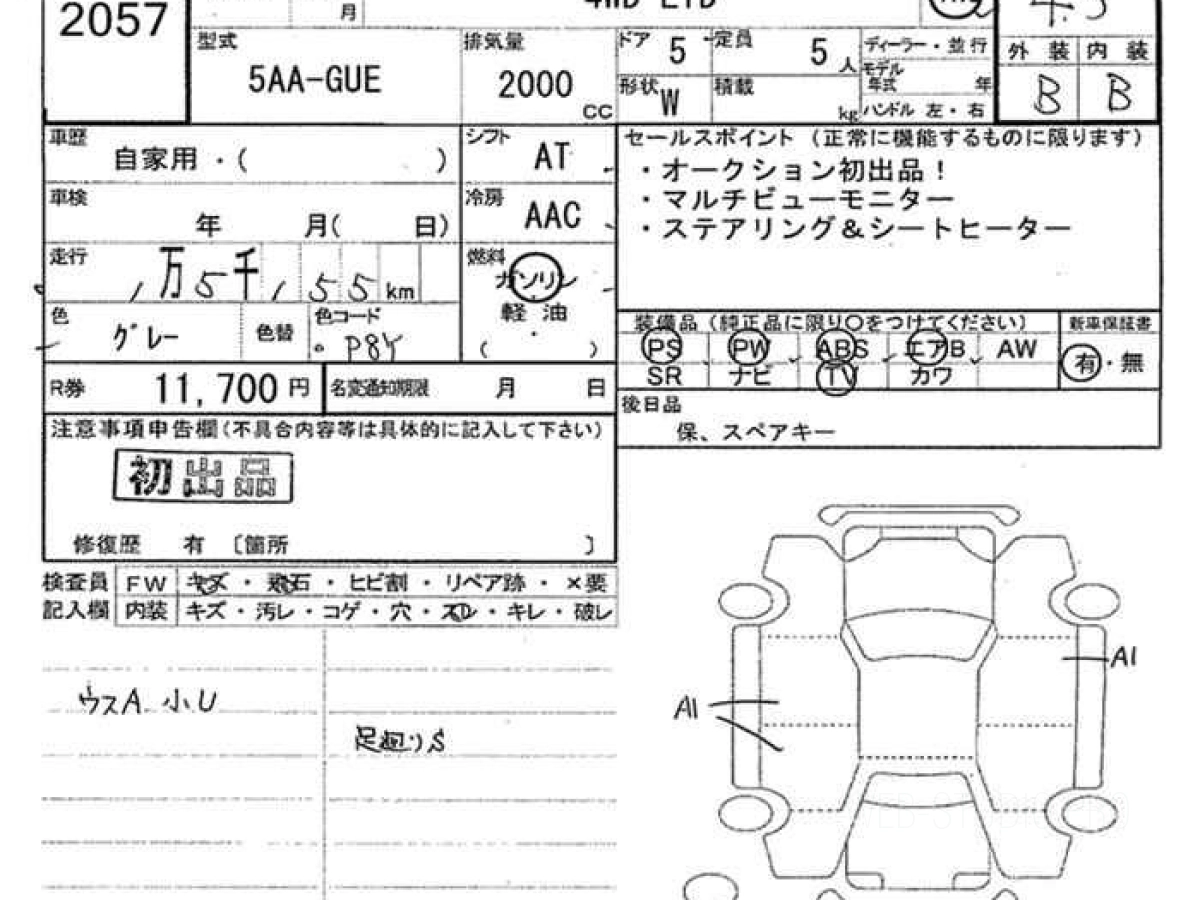 2057
月
4WD LTD
4.5
型式
5AA-GUE
排気量
2000
CC
ドア
5
定員
5
人
ディーラー・並行
外 装
内 装
形状
W
積載
kg
モデル
年式
年
ハンドル 左・右
B
B
車歴
自家用・( )
シフト
AT
セールスポイント (正常に機能するものに限ります)
・オークション初出品!
・マルチビューモニター
・ステアリング&シートヒーター
車検
年 月( 日)
冷房
AAC
走行
1万5千155km
燃料
ガソリン
軽 油
( ・ )
色
グレー
色替
色コード
P8Y
装備品 (純正品に限り○をつけてください)
新車保証書
PS PW ABS エアB AW
有・無
SR ナビ TV カワ
R券
11,700 円
名変通知期限
月 日
後日品
保、スペアキー
注意事項申告欄(不具合内容等は具体的に記入して下さい)
初出品
修復歴 有 〔箇所 〕
検査員
FW
キズ・飛石・ヒビ割・リペア跡・×要
記入欄
内装
キズ・汚レ・コゲ・穴・スレ・キレ・破レ
ウスA 小U
足廻りS
A1
A1